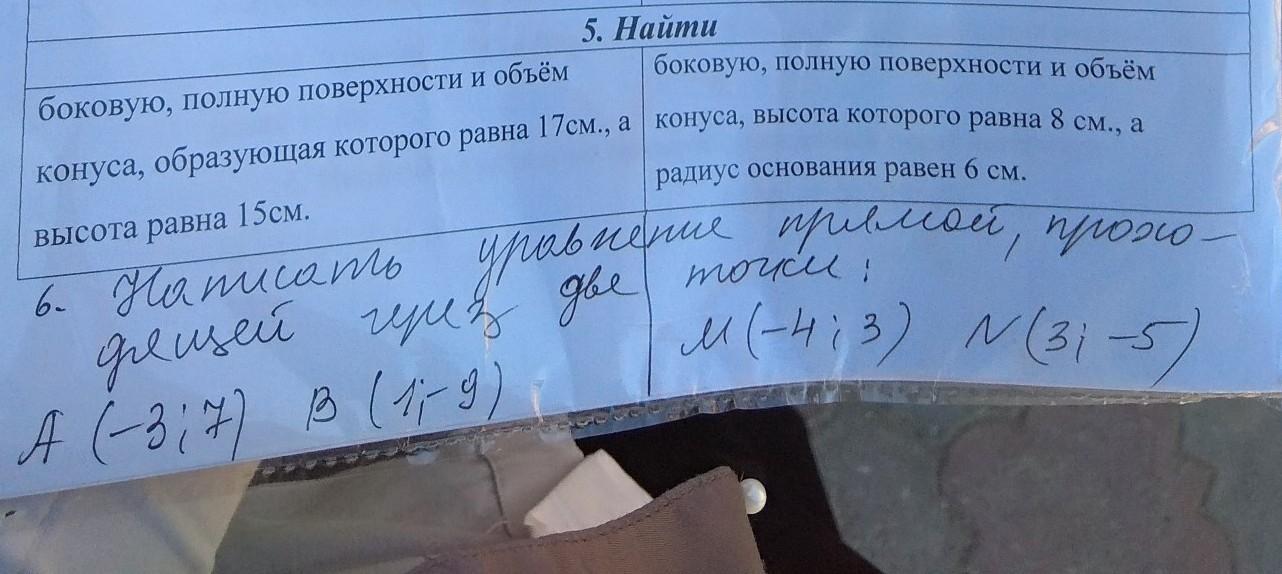 5. Найти
боковую, полную поверхности и объём
конуса, образующая которого равна 17см., а
высота равна 15см.
боковую, полную поверхности и объём
конуса, высота которого равна 8 см., а
радиус основания равен 6 см.
6. Написать уравнение прямой, прохо-
дящей через две точки:
A (-3; 7) B (1; -9)
M (-4; 3) N (3; -5)